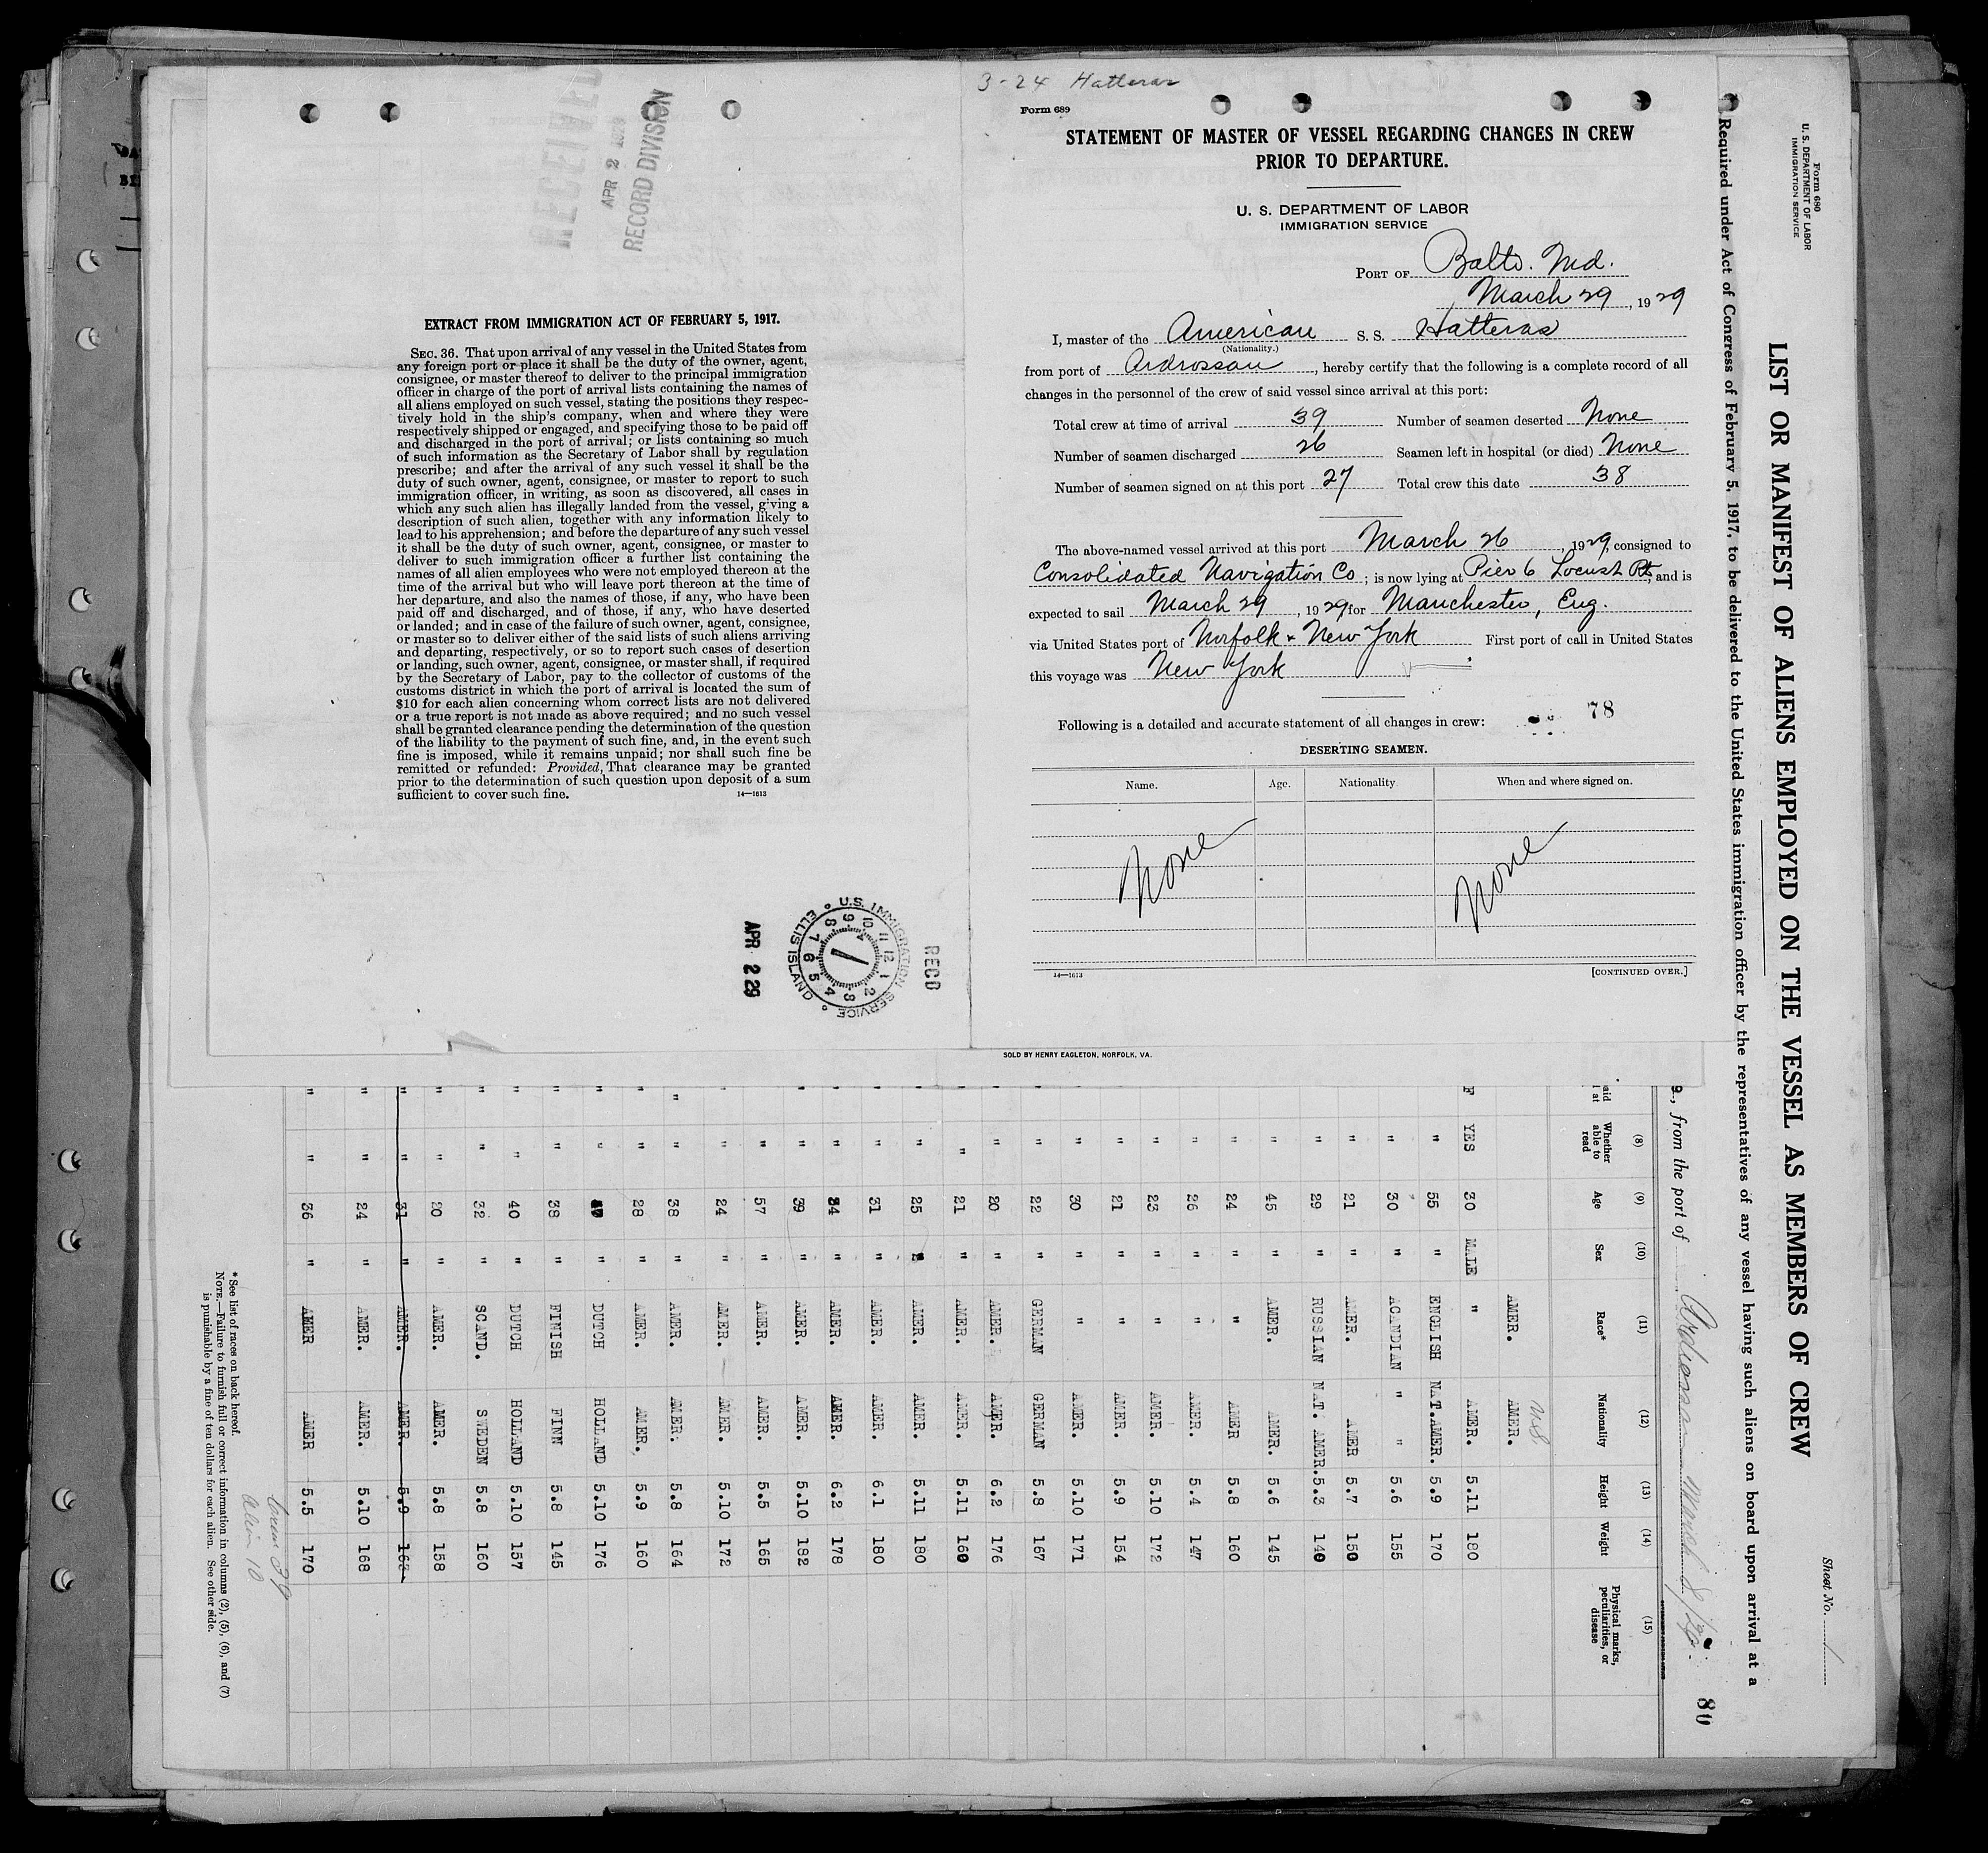 RECEIVED
APR 2 1929
RECORD DIVISION
EXTRACT FROM IMMIGRATION ACT OF FEBRUARY 5, 1917.
SEC. 36. That upon arrival of any vessel in the United States from
any foreign port or place it shall be the duty of the owner, agent,
consignee, or master thereof to deliver to the principal immigration
officer in charge of the port of arrival lists containing the names of
all aliens employed on such vessel, stating the positions they respec-
tively hold in the ship's company, when and where they were
respectively shipped or engaged, and specifying those to be paid off
and discharged in the port of arrival; or lists containing so much
of such information as the Secretary of Labor shall by regulation
prescribe; and after the arrival of any such vessel it shall be the
duty of such owner, agent, consignee, or master to report to such
immigration officer, in writing, as soon as discovered, all cases in
which any such alien has illegally landed from the vessel, giving a
description of such alien, together with any information likely to
lead to his apprehension; and before the departure of any such vessel
it shall be the duty of such owner, agent, consignee, or master to
deliver to such immigration officer a further list containing the
names of all alien employees who were not employed thereon at the
time of the arrival but who will leave port thereon at the time of
her departure, and also the names of those, if any, who have been
paid off and discharged, and of those, if any, who have deserted
or landed; and in case of the failure of such owner, agent, consignee,
or master so to deliver either of the said lists of such aliens arriving
and departing, respectively, or so to report such cases of desertion
or landing, such owner, agent, consignee, or master shall, if required
by the Secretary of Labor, pay to the collector of customs of the
customs district in which the port of arrival is located the sum of
$10 for each alien concerning whom correct lists are not delivered
or a true report is not made as above required; and no such vessel
shall be granted clearance pending the determination of the question
of the liability to the payment of such fine, and, in the event such
fine is imposed, while it remains unpaid; nor shall such fine be
remitted or refunded: Provided, That clearance may be granted
prior to the determination of such question upon deposit of a sum
sufficient to cover such fine.
14—1613
RECD
U.S. IMMIGRATION SERVICE ELLIS ISLAND
12 1 2 3 4 5 6 7 8 9 10 11
APR 2 29
3-24 Hatteras
Form 689
STATEMENT OF MASTER OF VESSEL REGARDING CHANGES IN CREW
PRIOR TO DEPARTURE.
U. S. DEPARTMENT OF LABOR
IMMIGRATION SERVICE
PORT OF Balto. Md.
March 29, 1929
I, master of the American S. S. Hatteras
(Nationality.)
from port of Ardrossan, hereby certify that the following is a complete record of all
changes in the personnel of the crew of said vessel since arrival at this port:
Total crew at time of arrival 39 Number of seamen deserted None
Number of seamen discharged 26 Seamen left in hospital (or died) None
Number of seamen signed on at this port 27 Total crew this date 38
The above-named vessel arrived at this port March 26, 1929, consigned to
Consolidated Navigation Co; is now lying at Pier 6 Locust Pt, and is
expected to sail March 29, 1929 for Manchester, Eng.
via United States port of Norfolk & New York First port of call in United States
this voyage was New York
Following is a detailed and accurate statement of all changes in crew: 78
DESERTING SEAMEN.
Name. Age. Nationality When and where signed on.
None None
14—1613 [CONTINUED OVER.]
SOLD BY HENRY EAGLETON, NORFOLK, VA.
Form 680
U. S. DEPARTMENT OF LABOR
IMMIGRATION SERVICE
Sheet No. 1
LIST OR MANIFEST OF ALIENS EMPLOYED ON THE VESSEL AS MEMBERS OF CREW
Required under Act of Congress of February 5, 1917, to be delivered to the United States immigration officer by the representatives of any vessel having such aliens on board upon arrival at a
80
, from the port of Ardrossan March 8/29.
(8) (9) (10) (11) (12) (13) (14) (15)
Whether able to read Age Sex Race* Nationality Height Weight Physical marks, peculiarities, or disease
U.S.
AMER. AMER.
F YES 30 MALE " AMER. 5.11 180
" 55 " ENGLISH N.T.AMER. 5.9 170
" 30 " ACANDIAN " " 5.6 155
" 21 " AMER. AMER 5.7 150
" 29 " RUSSIAN NAT. AMER. 5.3 140
" 45 " AMER. AMER. 5.6 145
" 24 " " AMER 5.8 160
" 26 " " AMER. 5.4 147
" 23 " " AMER. 5.10 172
" 21 " " AMER. 5.9 154
" 30 " " AMER. 5.10 171
" 22 " GERMAN GERMAN 5.8 167
" 20 " AMER. AMER. 6.2 176
" 21 " AMER. AMER. 5.11 160
" 25 " AMER. AMER. 5.11 180
" 31 " AMER. AMER. 6.1 180
" 34 " AMER. AMER. 6.2 178
" " 39 " AMER. AMER. 5.10 182
" " 57 " AMER. AMER. 5.5 165
" " 24 " AMER. AMER. 5.10 172
" " 38 " AMER. AMER. 5.8 164
" " 28 " AMER. AMER. 5.9 160
" " " DUTCH HOLLAND 5.10 176
" " 38 " FINISH FINN 5.8 145
" " 40 " DUTCH HOLLAND 5.10 157
" " 32 " SCAND. SWEDEN 5.8 160
" " 20 " AMER. AMER. 5.8 158
" " 31 " AMER. AMER. 5.9 163
" " 24 " AMER. AMER. 5.10 168
" " 36 " AMER AMER 5.5 170
39
Alien 10
* See list of races on back hereof.
NOTE.—Failure to furnish full or correct information in columns (2), (5), (6), and (7)
is punishable by a fine of ten dollars for each alien. See other side.